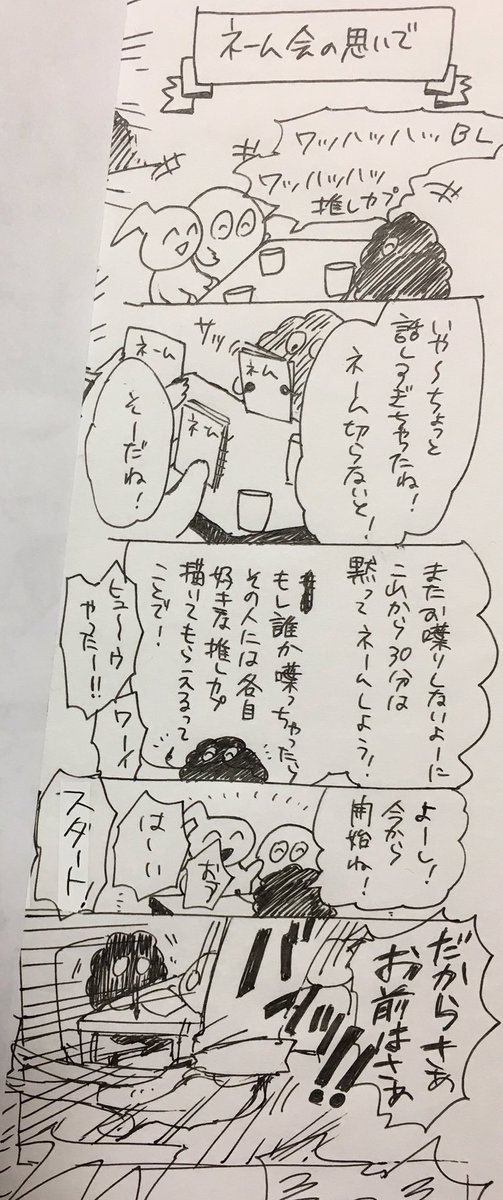 ネーム会の思いで
ワッハッハッハッ BL
ワッハッハッ
推しカプ
いや〜ちょっと
話しすぎちゃったね!
ネーム切らないと!
サッ
ネーム
ネーム
ネーム
そーだね!
またお喋りしないよーに
これから30分は
黙ってネームしよう!
もし誰か喋っちゃったら
その人には各自
好きな推しカプ
描いてもらえるって
ことで!
ヒュ〜ウ
やったー!!
ワーイ
よーし!
今から
開始ね!
おう
はーい
スタート!
だからさぁ
お前はさぁ
バッ!!